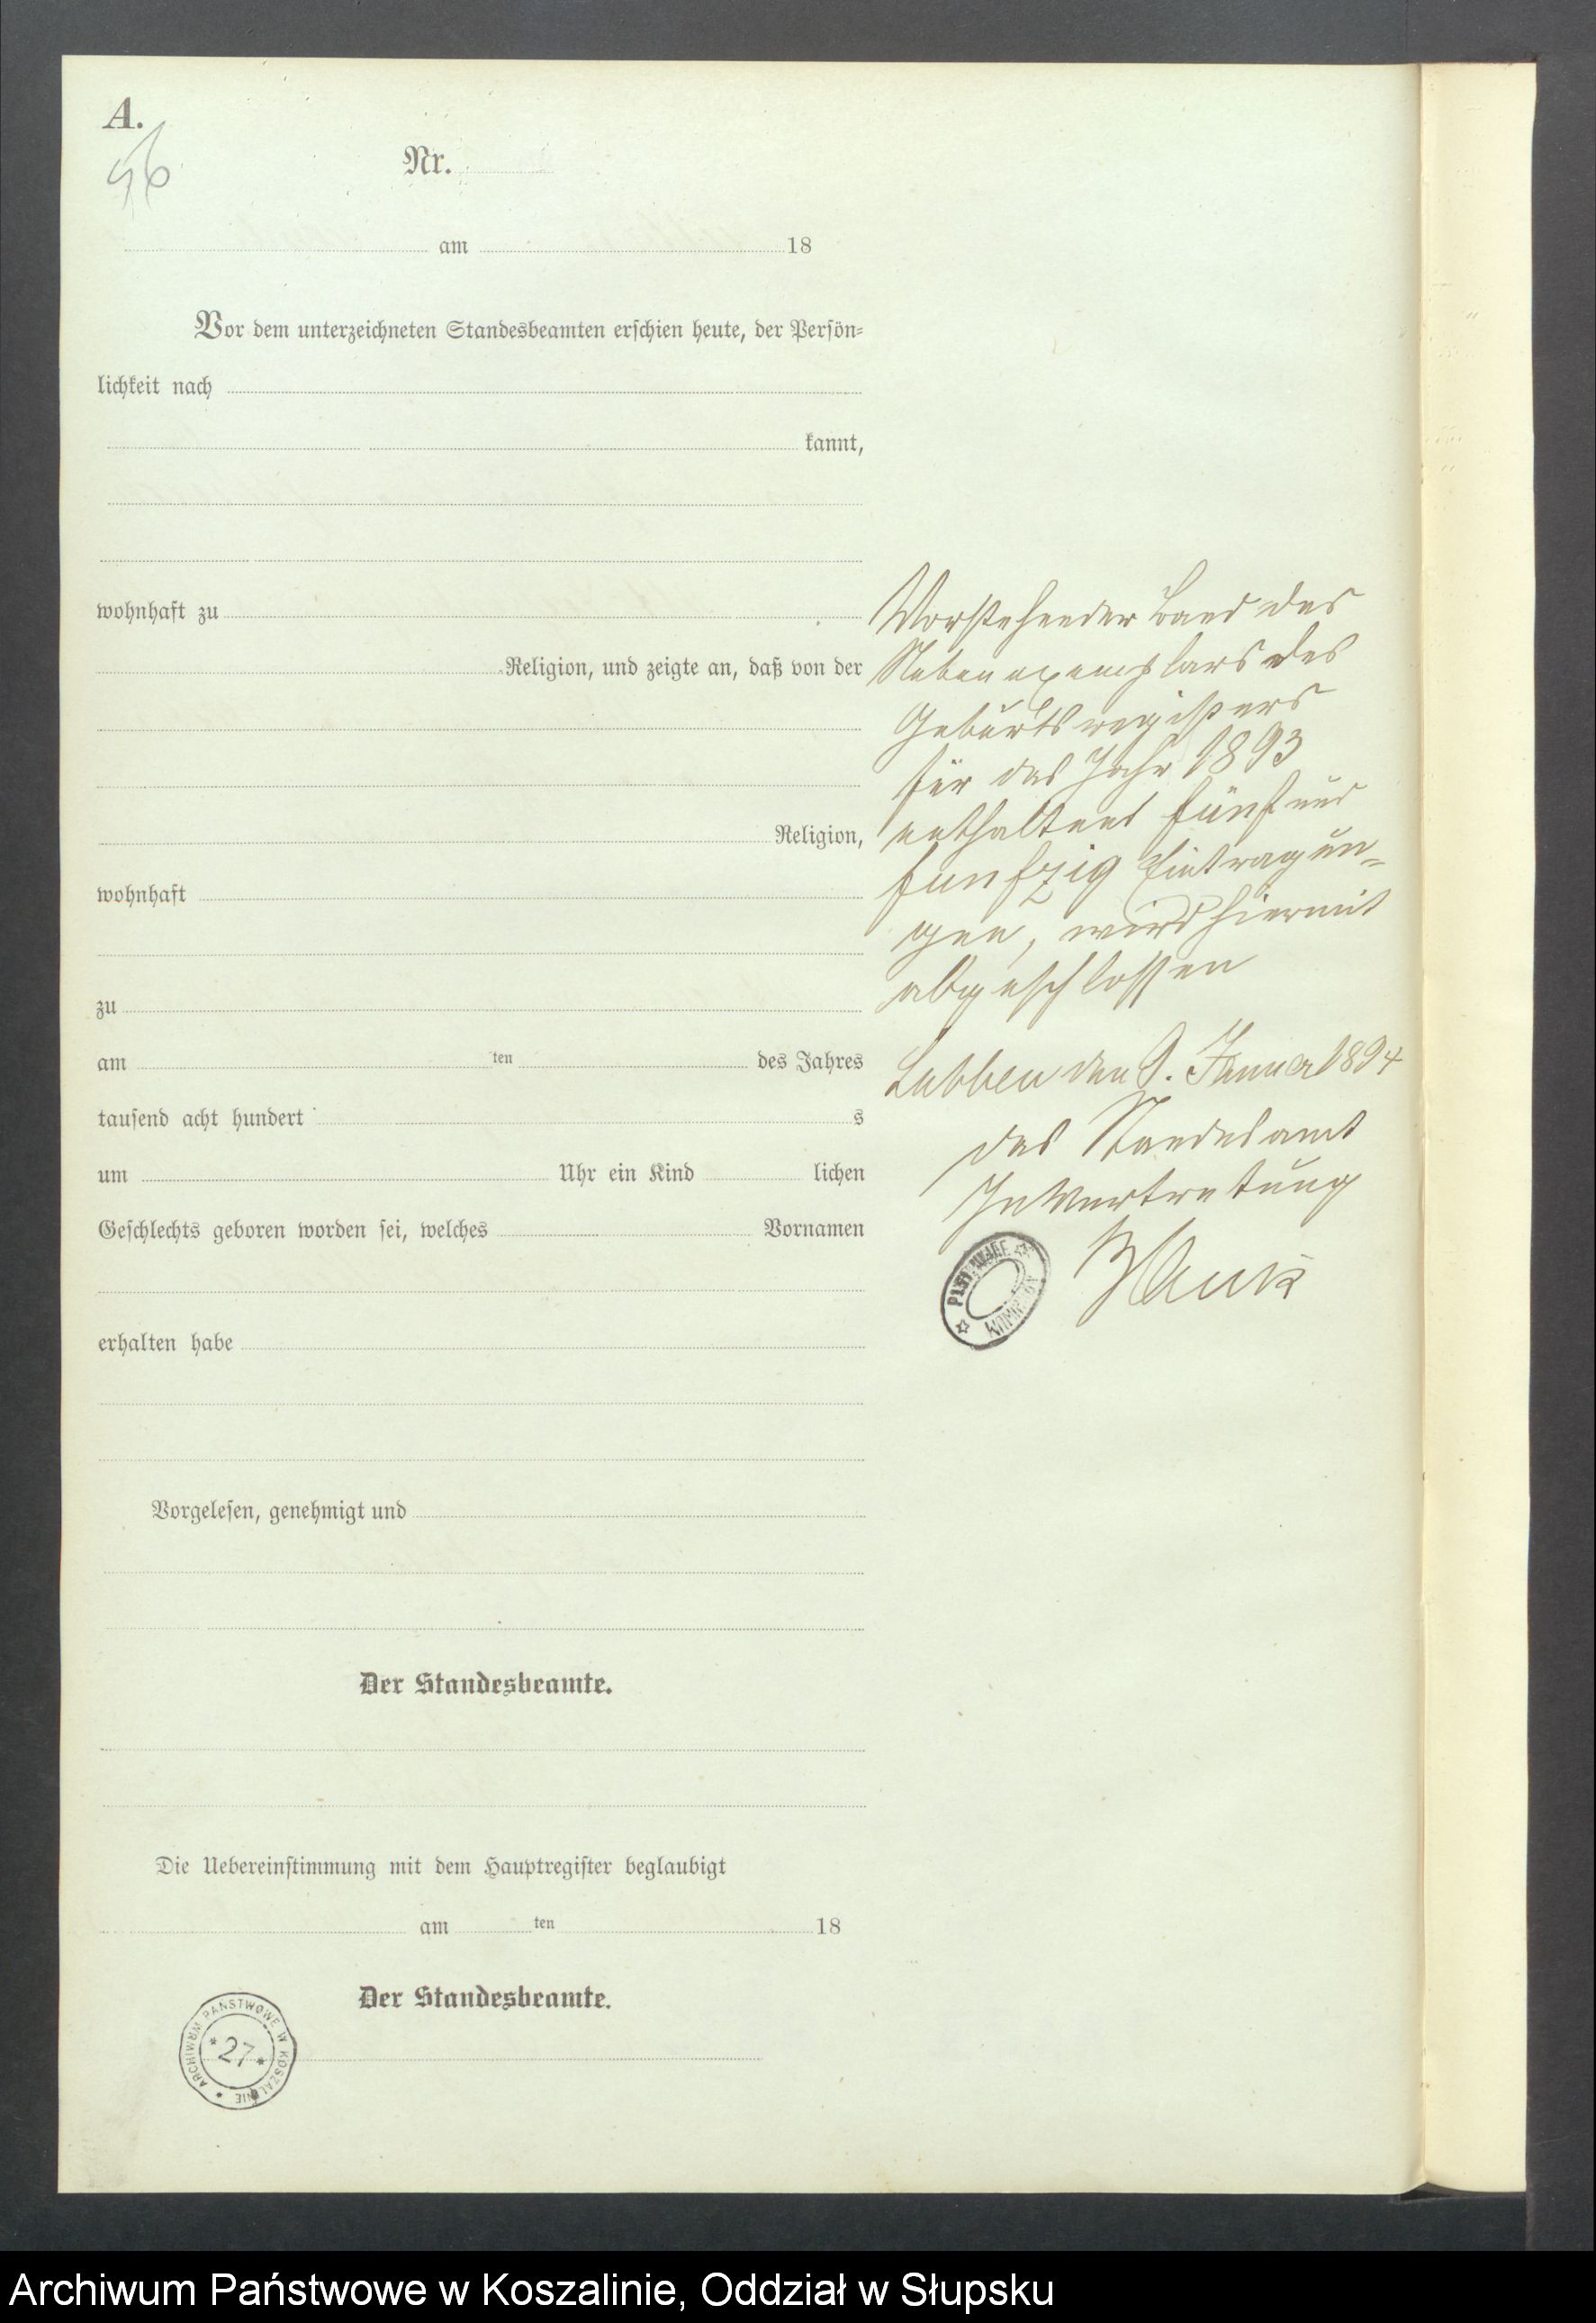 A.
56
Nr.
am 18
Vor dem unterzeichneten Standesbeamten erschien heute, der Persön-
lichkeit nach
kannt,
wohnhaft zu
Religion, und zeigte an, daß von der
Religion,
wohnhaft
zu
am ten des Jahres
tausend acht hundert s
um Uhr ein Kind lichen
Geschlechts geboren worden sei, welches Vornamen
erhalten habe
Vorgelesen, genehmigt und
Der Standesbeamte.
Die Uebereinstimmung mit dem Hauptregister beglaubigt
am ten 18
Der Standesbeamte.
Vorstehender Band des
Nebenexemplars des
Geburtsregisters
für das Jahr 1893
enthaltend fünf und
funfzig Eintragun-
gen, wird hiermit
abgeschlossen
Lubben den 9. Januar 1894
das Standesamt
In Vertretung
ARCHIWUM PAŃSTWOWE W KOSZALINIE
*27*
Archiwum Państwowe w Koszalinie, Oddział w Słupsku